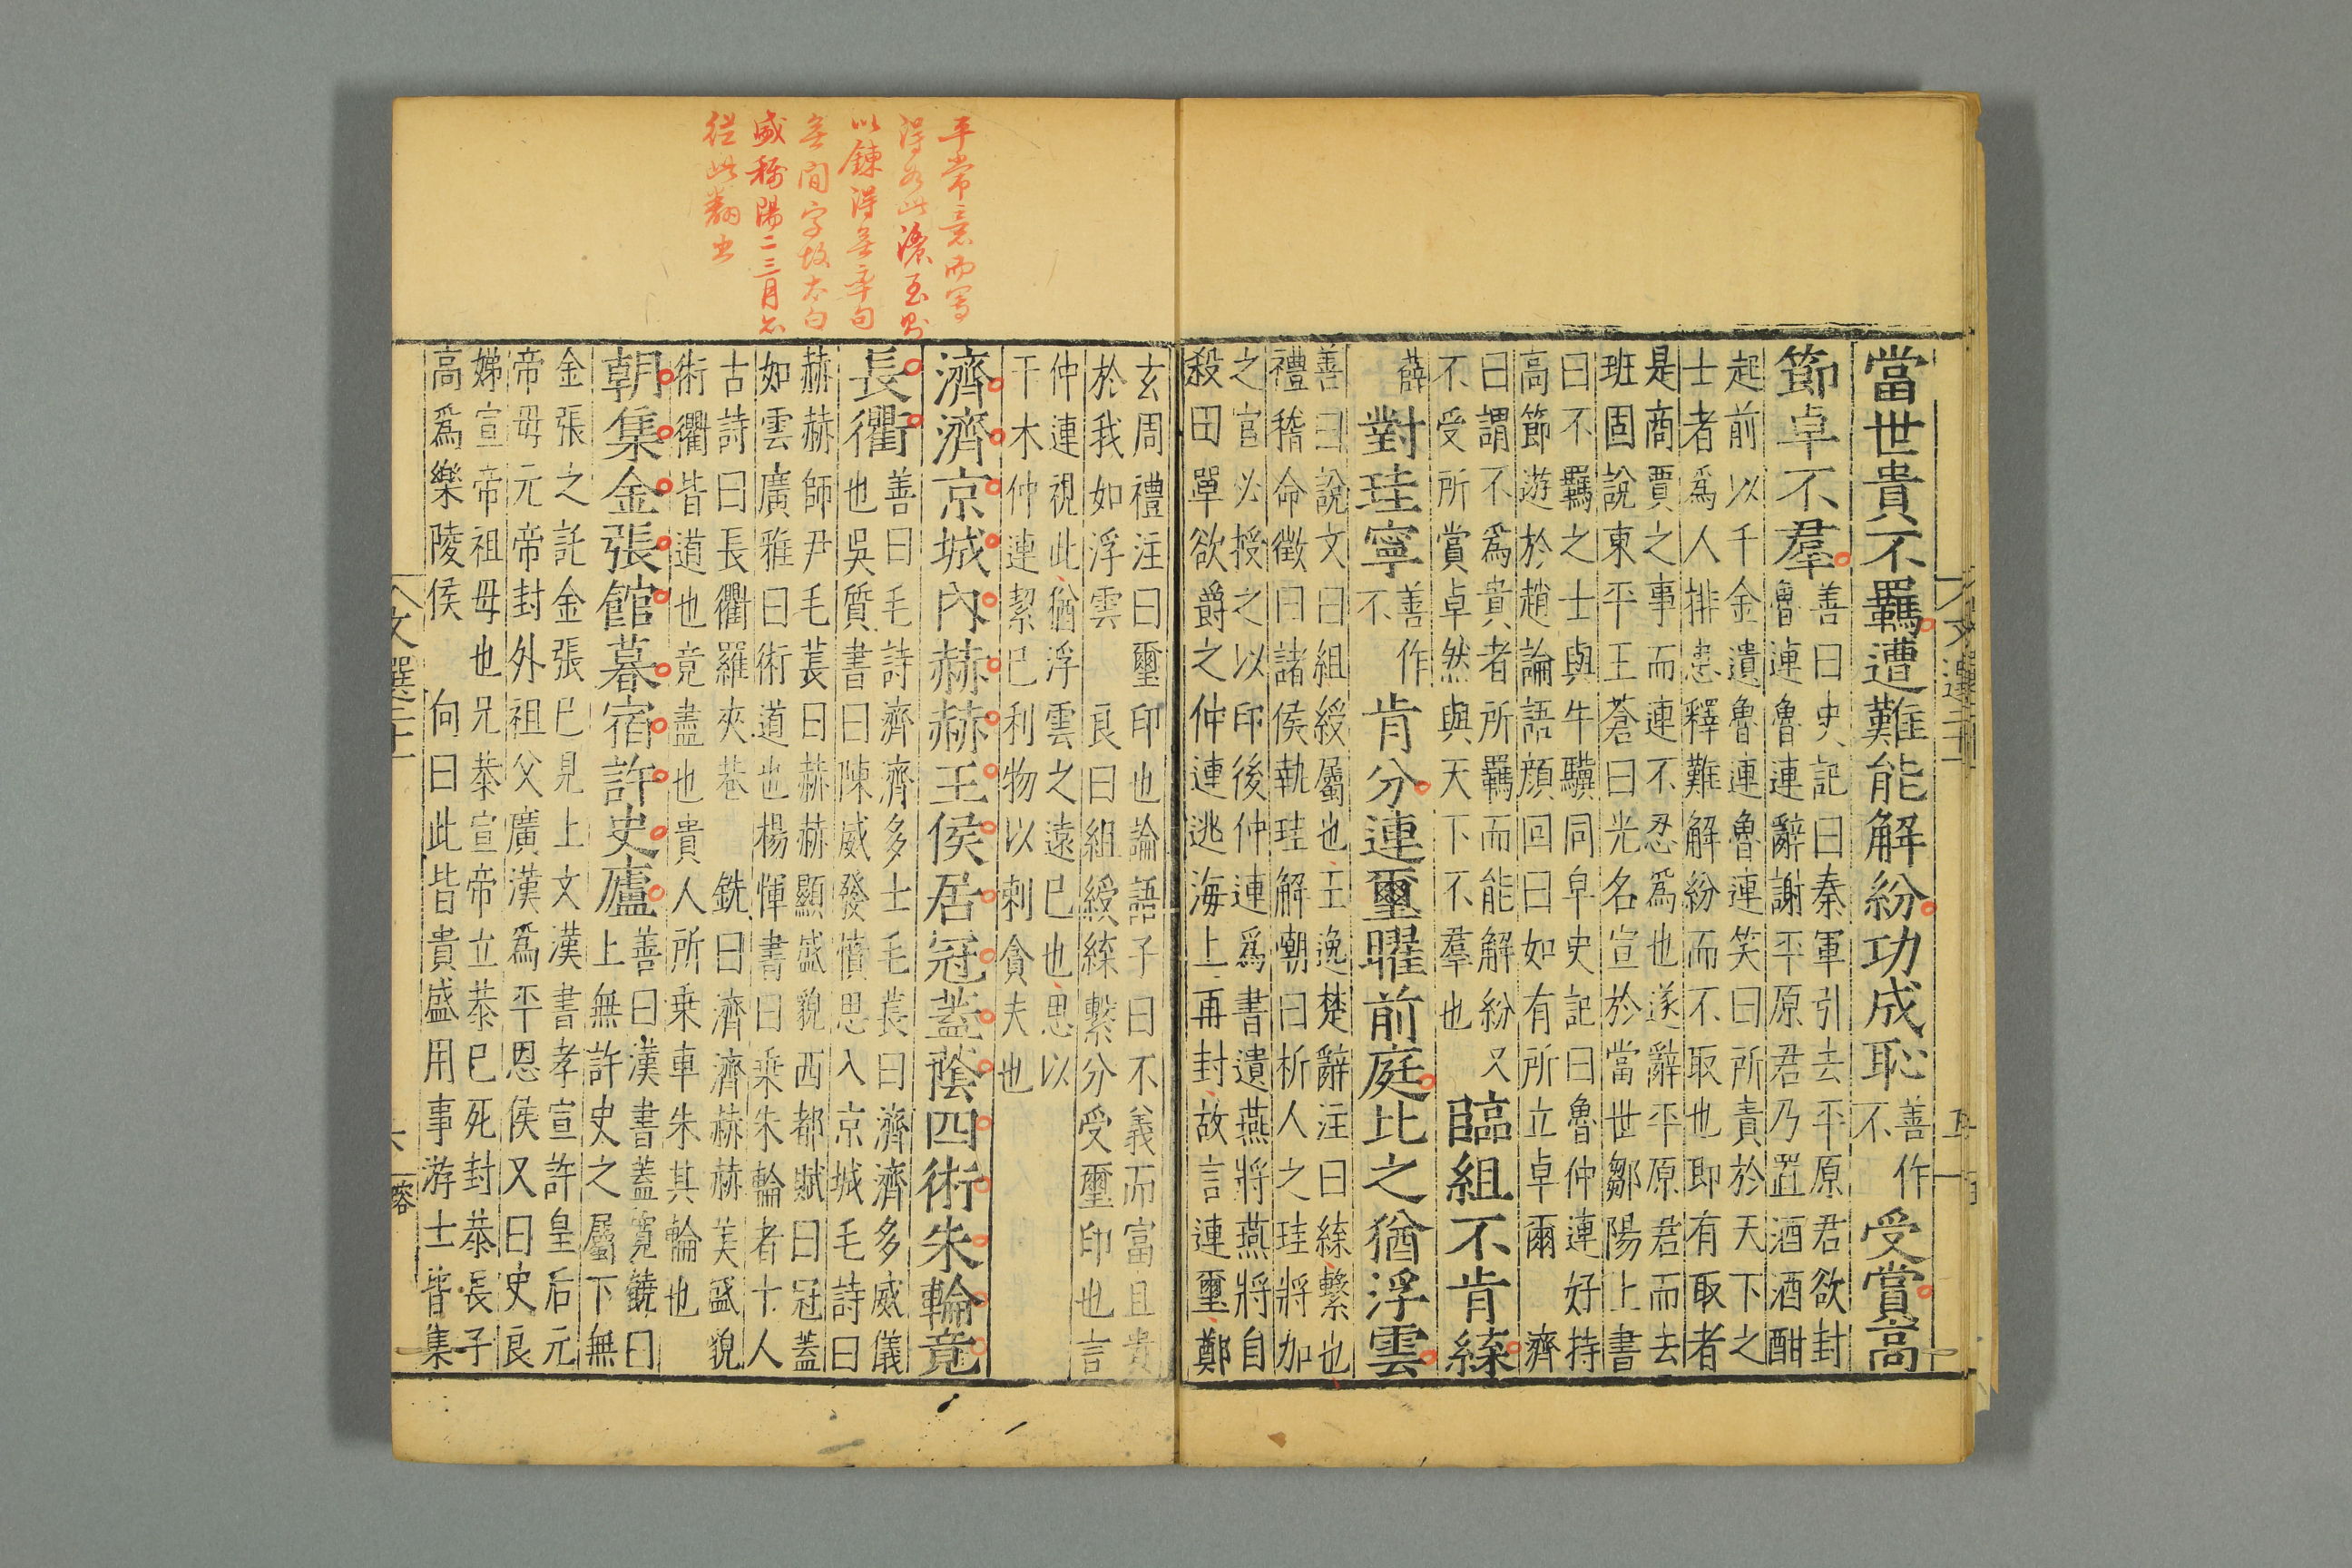 當世貴不羈遭難能解紛功成恥不善作受賞高
節卓不羣
善曰史記曰秦軍引去平原君欲封
魯連魯連辭謝平原君乃置酒酒酣
起前以千金遺魯連魯連笑曰所責於天下之
士者爲人排患釋難解紛而不取也即有取者
是商賈之事而連不忍爲也遂辭平原君而去
班固說東平王蒼曰光名宣於當世鄒陽上書
曰不羈之士與牛驥同皁史記曰魯仲連好持
高節遊於趙論語顔回曰如有所立卓爾 濟
曰謂不爲貴者所羈而能解紛又
不受所賞卓然與天下不羣也
臨組不肯緤
薛
對珪寧不善作肯分連璽曜前庭比之猶浮雲
善曰說文曰組綬屬也王逸楚辭注曰緤繫也
禮稽命徵曰諸侯執珪解嘲曰析人之珪將加
之官必授之以印後仲連爲書遺燕將燕將自
殺田單欲爵之仲連逃海上再封故言連璽鄭
玄周禮注曰璽印也論語子曰不義而富且貴
於我如浮雲 良曰組綬緤繫分受璽印也言
仲連視此猶浮雲之遠已也思以
干木仲連絜已利物以刺貪夫也
濟濟京城內赫赫王侯居冠蓋蔭四術朱輪竟
長衢
善曰毛詩濟濟多士毛萇曰濟濟多威儀
也吳質書曰陳威發憤思入京城毛詩曰
赫赫師尹毛萇曰赫赫顯盛貌西都賦曰冠蓋
如雲廣雅曰術道也楊惲書曰乗朱輪者十人
古詩曰長衢羅夾巷 銑曰濟濟赫赫美盛貌
術衢皆道也竟盡也貴人所乗車朱其輪也
朝集金張館暮宿許史廬
善曰漢書蓋寬饒曰
上無許史之屬下無
金張之託金張已見上文漢書孝宣許皇后元
帝母元帝封外祖父廣漢爲平恩侯又曰史良
娣宣帝祖母也兄恭宣帝立恭已死封恭長子
高爲樂陵侯 向曰此皆貴盛用事游士皆集
文選二十一
平常意而寫
得如此濃至則
以鍊得無一本句
無閒字故太白
咸陽二三月亦
從此翻出